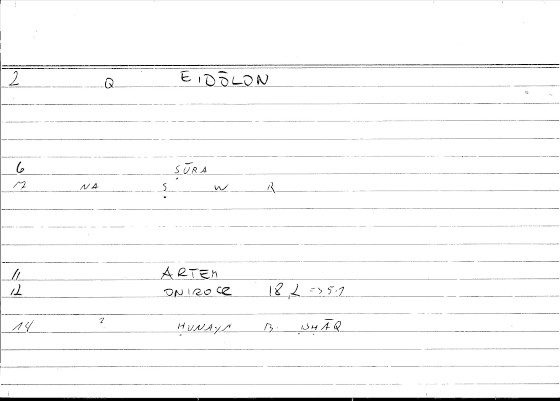 2 Q EIDŌLON
6 ṢŪRA
NA Ṣ W R
11 ARTEM
12 ONIROCR 18,2
14 ḤUNAYN B.